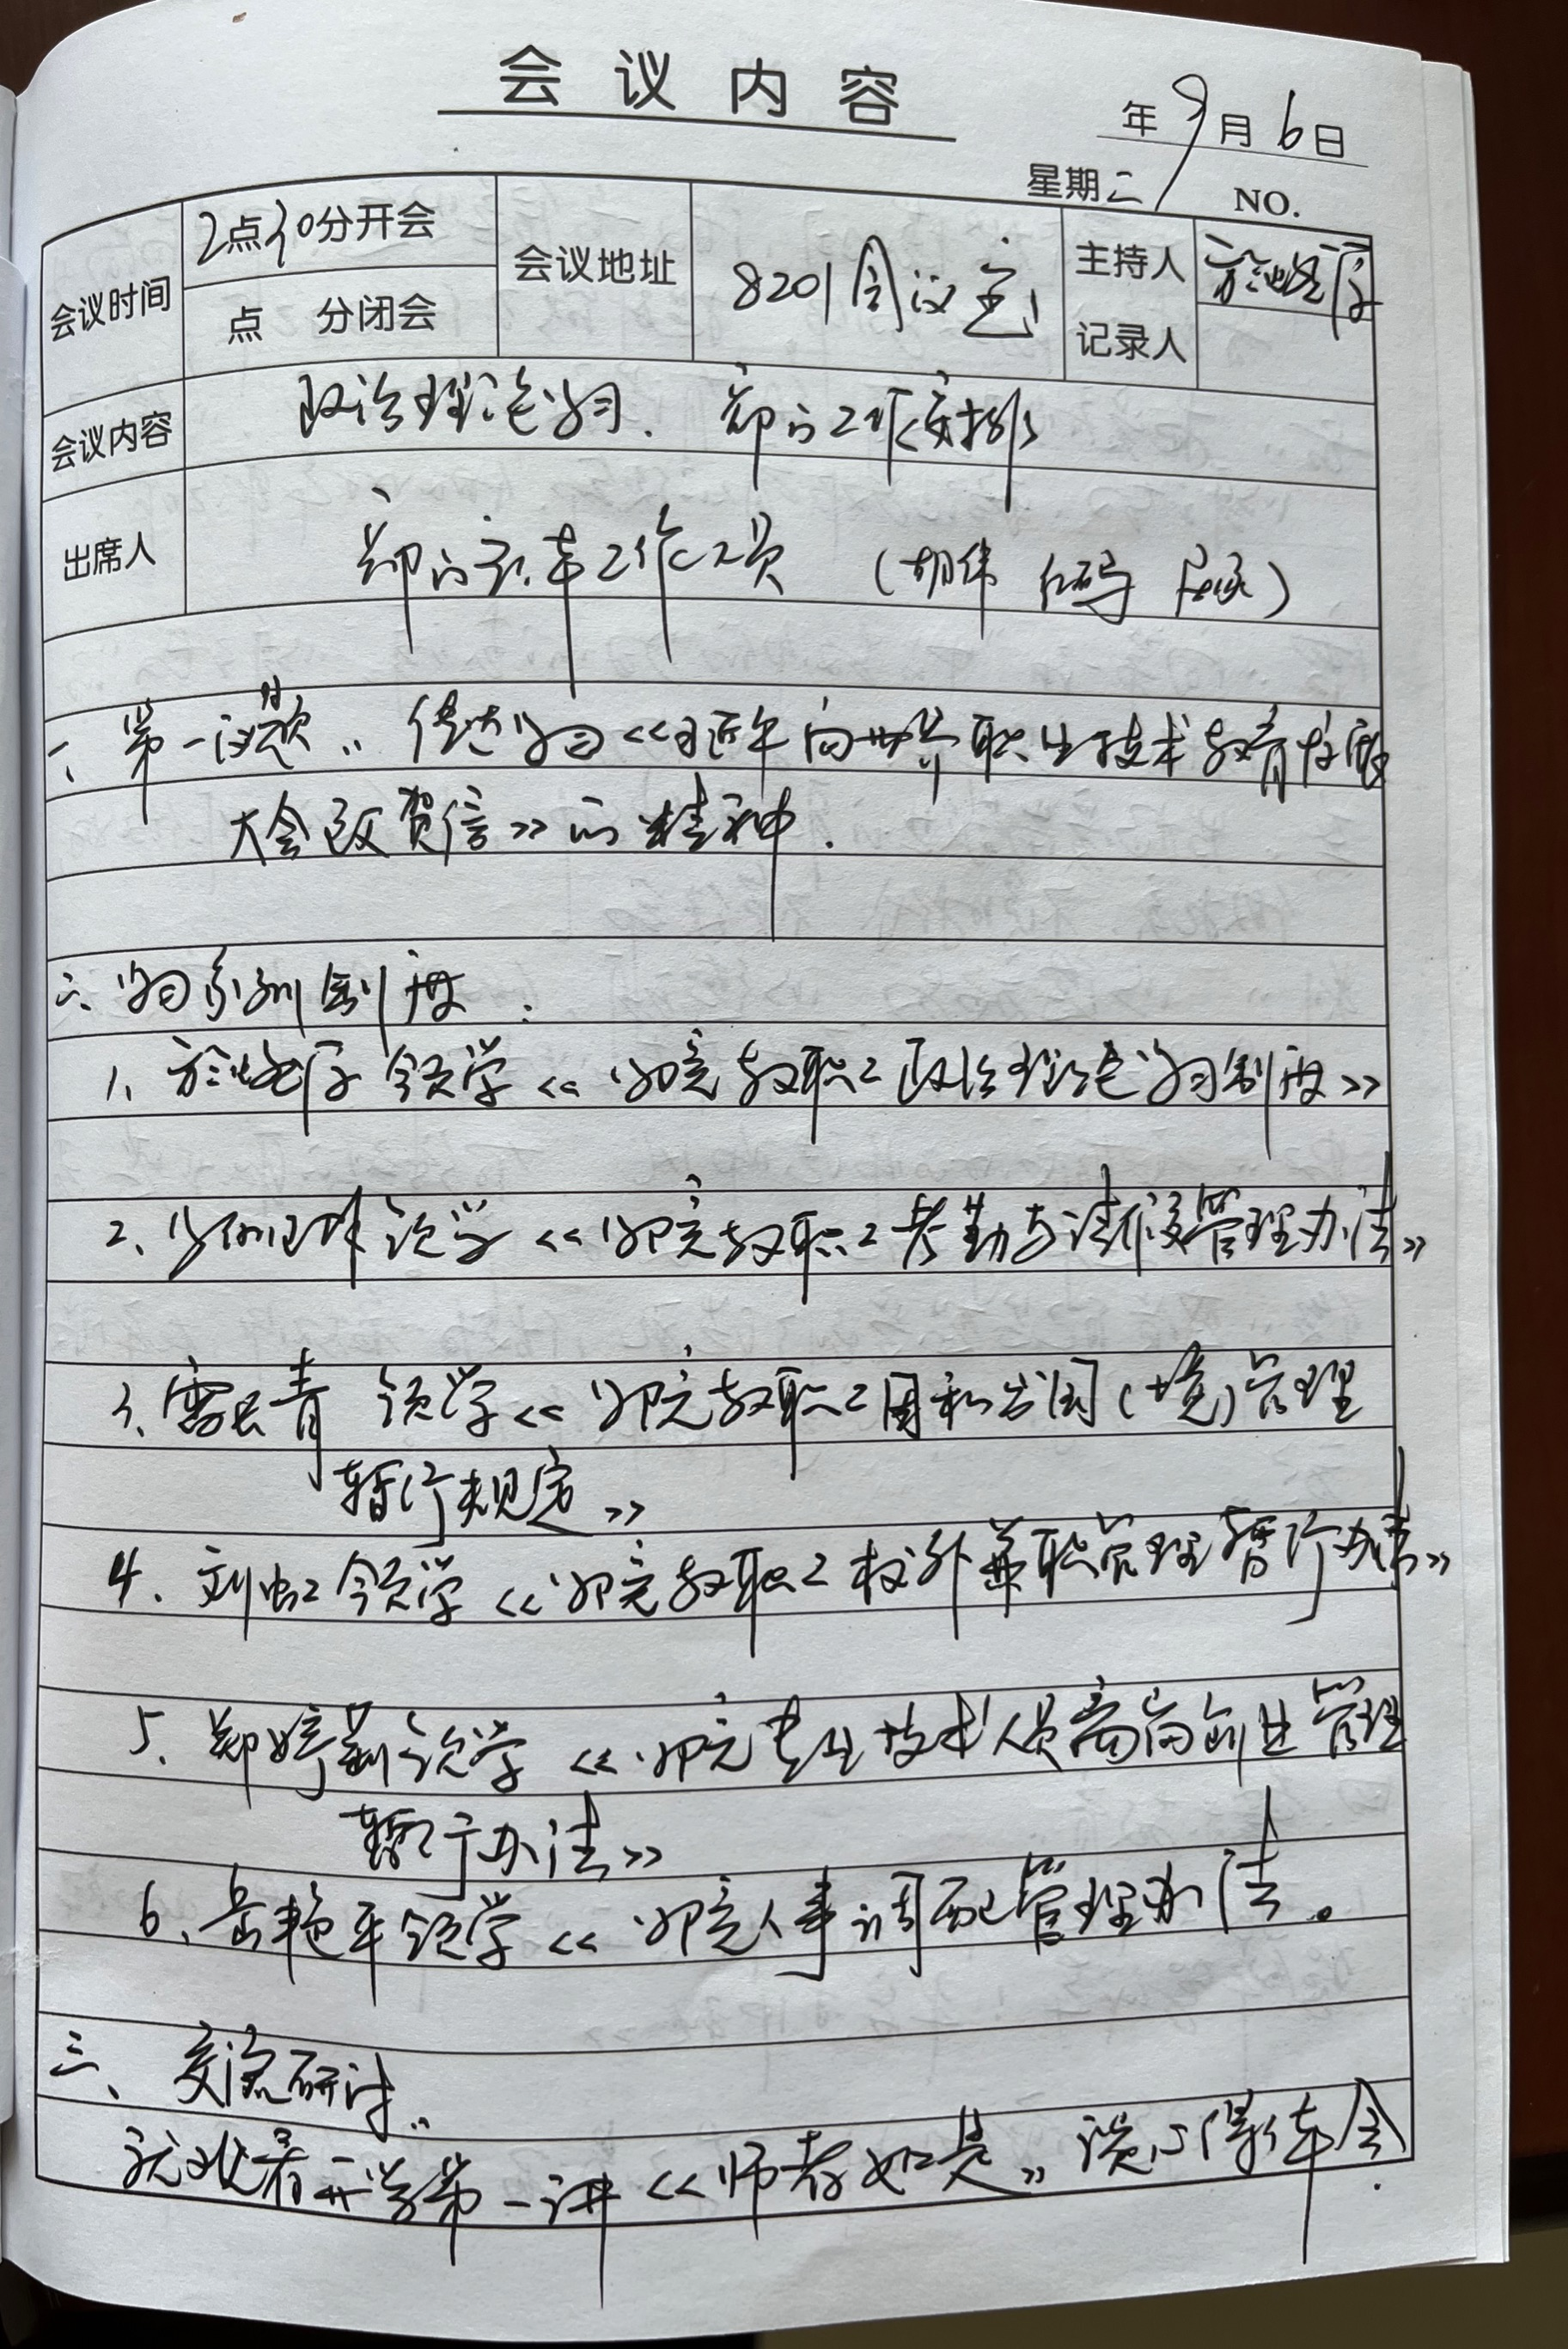 会议内容
年9月6日
星期二 NO.
会议时间 2点30分开会 会议地址 8201会议室 主持人
点 分闭会 记录人
会议内容 政治理论学习. 部门工作安排
出席人 部门全体工作人员 (胡伟 请假)
一、第一议题:传达学习《习近平向世界职业技术教育发展
大会致贺信》的精神.
二、学习系列制度:
1、领学《学院教职工政治理论学习制度》
2、领学《学院教职工考勤与请假管理办法》
3、雷长青 领学《学院教职工因私出国(境)管理
暂行规定》
4、刘虹领学《学院教职工校外兼职管理暂行办法》
5、郑婷莉领学《学院专业技术人员离岗创业管理
暂行办法》
6、岳艳平领学《学院人事调配管理办法。
三、交流研讨:
就收看开学第一讲《师者如是》谈心得体会.